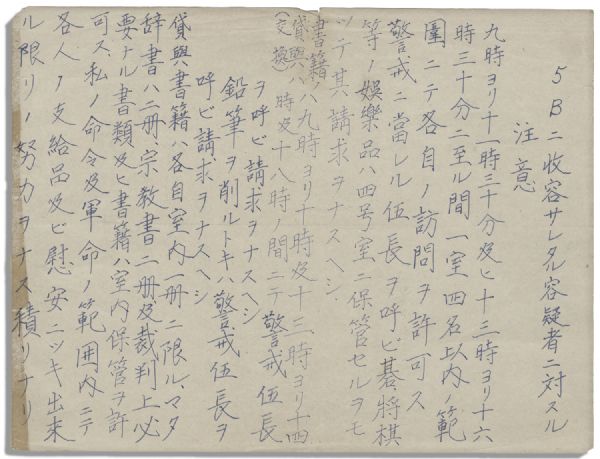 5Bニ收容サレタル容疑者ニ対スル
注意
九時ヨリ十一時三十分及ヒ十三時ヨリ十六
時三十分ニ至ル間一室四名以内ノ範
圍ニテ各自ノ訪問ヲ許可ス
警戒ニ當レル伍長ヲ呼ビ碁、將棋
等ノ娯樂品ハ四号室ニ保管セルヲモ
ツテ其請求ヲナスヘシ
書籍ノ
貸與ハ
(交換)
八九時ヨリ十時及十三、時ヨリ十四
時及十八時ノ間ニテ警戒伍長
ヲ呼ビ請求ヲナスヘシ
鉛筆ヲ削ルトキハ警戒伍長ヲ
呼ビ請求ヲナスヘシ
貸與書籍ハ各自室内一册ニ限ル、マタ
辞書ハ二册、宗教書二册及裁判上必
要ナル書類及ヒ書籍ハ室内保管ヲ許
可ス、私ノ命令及軍命ノ範囲内ニテ
各人ノ支給品及ビ慰安ニツキ出来
ル限リノ努力ヲナス積リナリ